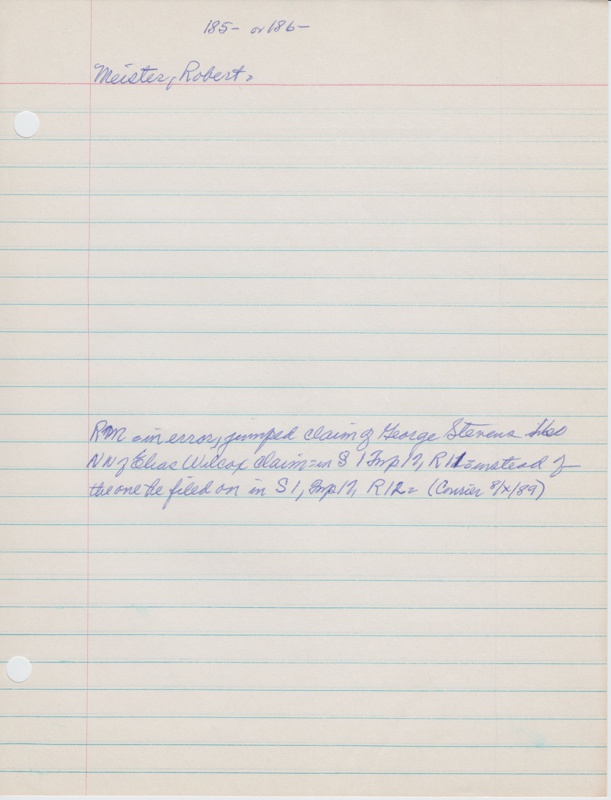 185- or 186-
Meister, Robert =
RM = in error, jumped claim of George Stevens
NN of Elias Wilcox claim = in S 1 Tmp 17, R 11 = instead of
the one he filed on in S 1, Tmp 17, R 12 = (Courier 8/x/89)